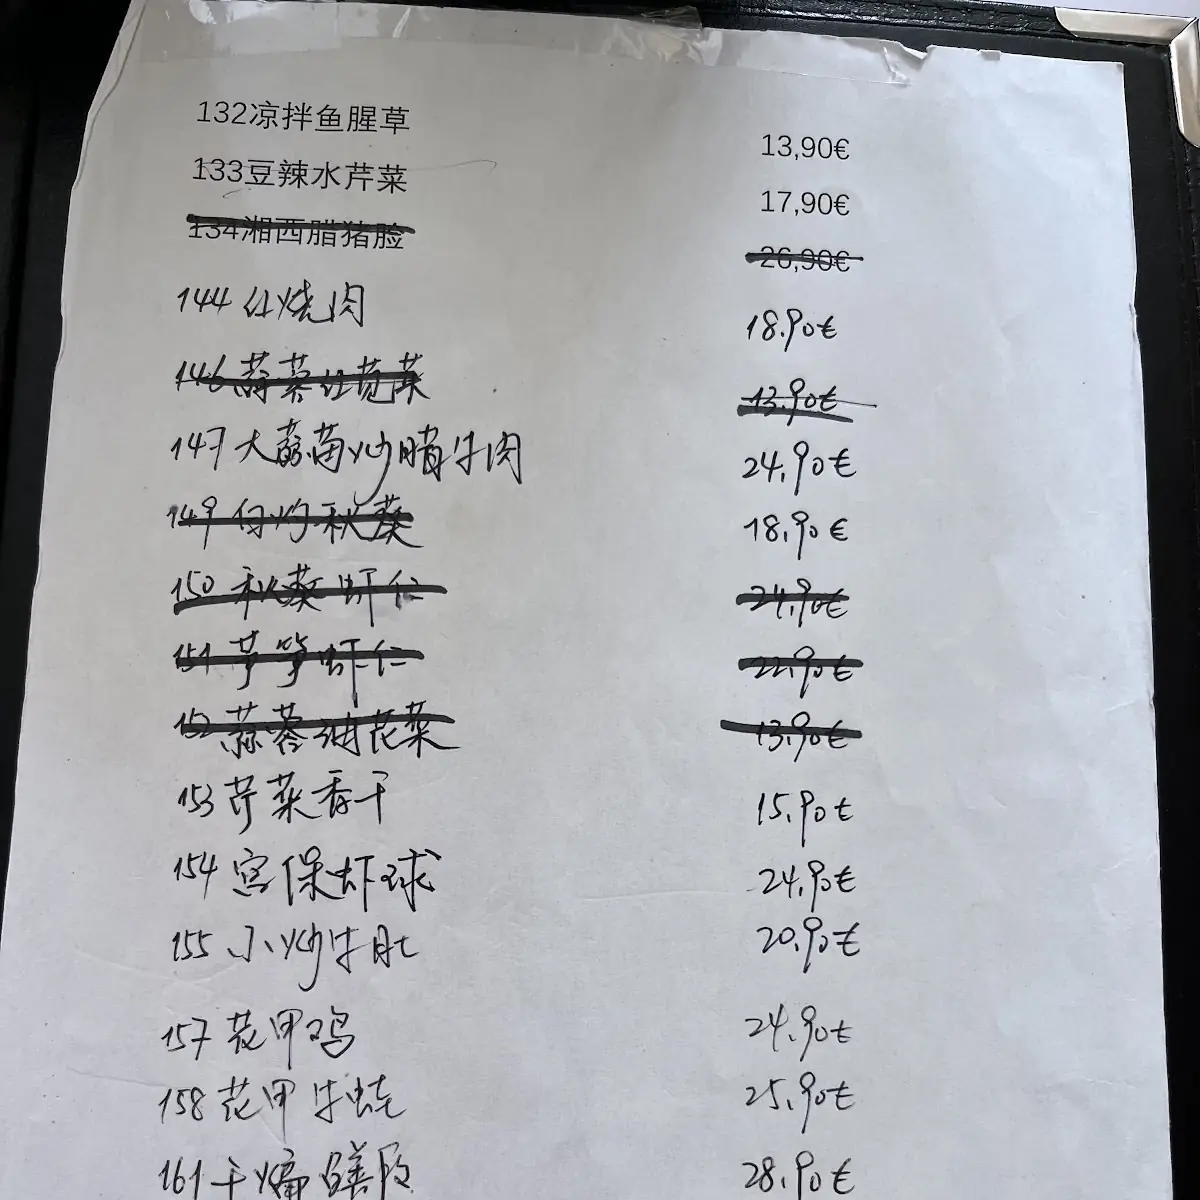 132凉拌鱼腥草 13,90€
133豆辣水芹菜 17,90€
134湘西腊猪脸 26,90€
144 红烧肉 18.90€
146 蒜蓉红苋菜 13.90€
147 大蒜苗炒腊牛肉 24,90€
149 白灼秋葵 18,90€
150 秋葵虾仁 24,90€
151 芦笋虾仁 22,90€
152 蒜蓉油花菜 13,90€
153 芹菜香干 15,90€
154 宫保虾球 24,90€
155 小炒牛肚 20,90€
157 花甲鸡 24,90€
158 花甲牛蛙 25,90€
161 干煸鳝段 28,90€